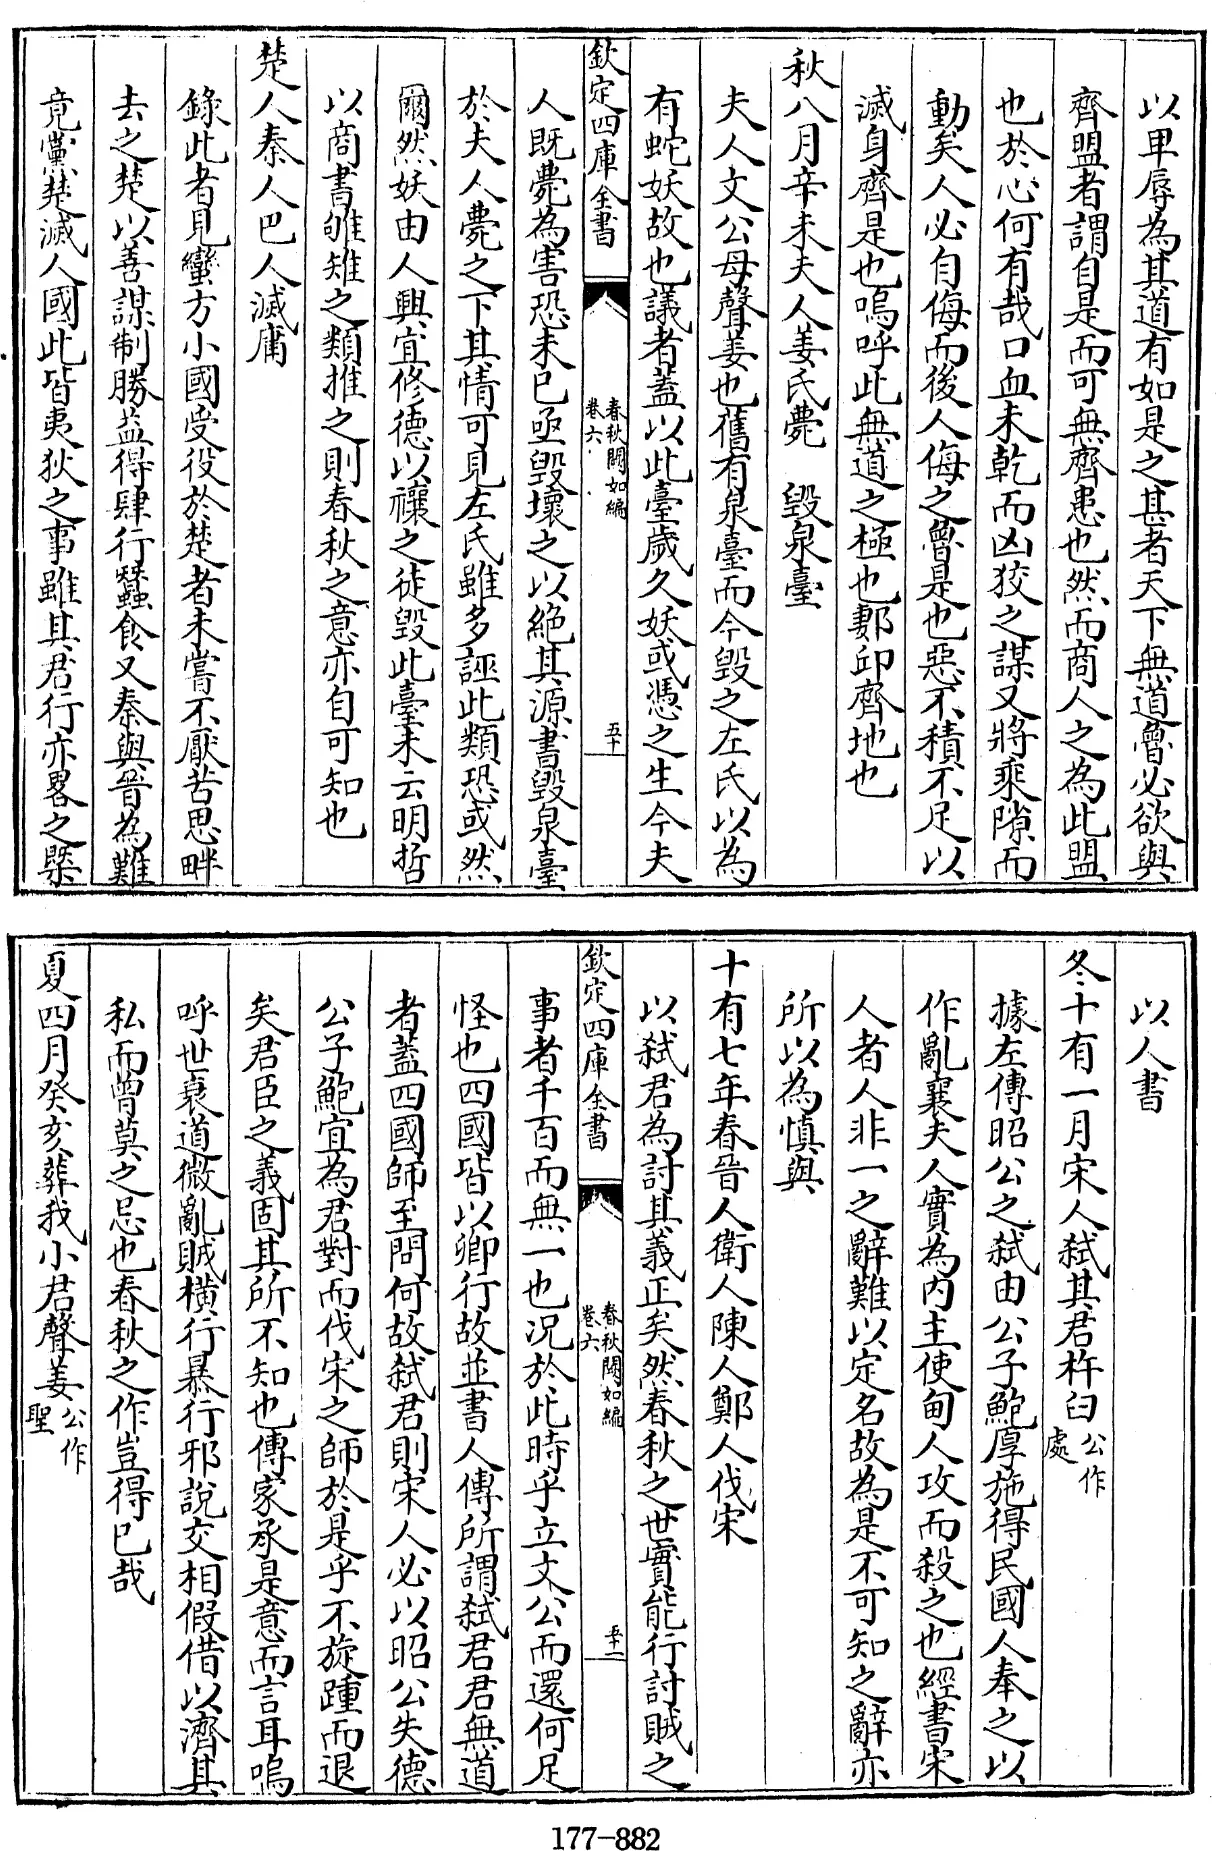 以甲辱為其道有如是之甚者天下無道魯必欲與
齊盟者謂自是而可無齊患也然而商人之為此盟
也於心何有哉口血未乾而凶狡之謀又將乘隙而
動矣人必自侮而後人侮之魯是也惡不積不足以
滅身齊是也嗚呼此無道之極也郪邱齊地也
秋八月辛未夫人姜氏薨 毀泉臺
夫人文公母聲姜也舊有泉臺而今毀之左氏以為
有蛇妖故也議者蓋以此臺歲久妖或憑之生今夫
欽定四庫全書
春秋闕如編
卷六
五十
人既薨為害恐未已亟毀壞之以絶其源書毀泉臺
於夫人薨之下其情可見左氏雖多誣此類恐或然
爾然妖由人興宜修德以禳之徒毀此臺未云明哲
以商書雊雉之類推之則春秋之意亦自可知也
楚人秦人巴人滅庸
錄此者見蠻方小國受役於楚者未嘗不厭苦思畔
去之楚以善謀制勝益得肆行蠶食又秦與晉為難
竟黨楚滅人國此皆夷狄之事雖其君行亦畧之槩
以人書
冬十有一月宋人弑其君杵臼公作處
據左傳昭公之弑由公子鮑厚施得民國人奉之以
作亂襄夫人實為内主使甸人攻而殺之也經書宋
人者人非一之辭難以定名故為是不可知之辭亦
所以為慎與
十有七年春晉人衛人陳人鄭人伐宋
以弑君為討其義正矣然春秋之世實能行討賊之
欽定四庫全書
春秋闕如編
卷六
五十一
事者千百而無一也况於此時乎立文公而還何足
怪也四國皆以卿行故並書人傳所謂弑君君無道
者蓋四國師至問何故弑君則宋人必以昭公失德
公子鮑宜為君對而伐宋之師於是乎不旋踵而退
矣君臣之義固其所不知也傳家承是意而言耳嗚
呼世衰道微亂賊橫行暴行邪說交相假借以濟其
私而曾莫之忌也春秋之作豈得已哉
夏四月癸亥葬我小君聲姜公作聖
177-882